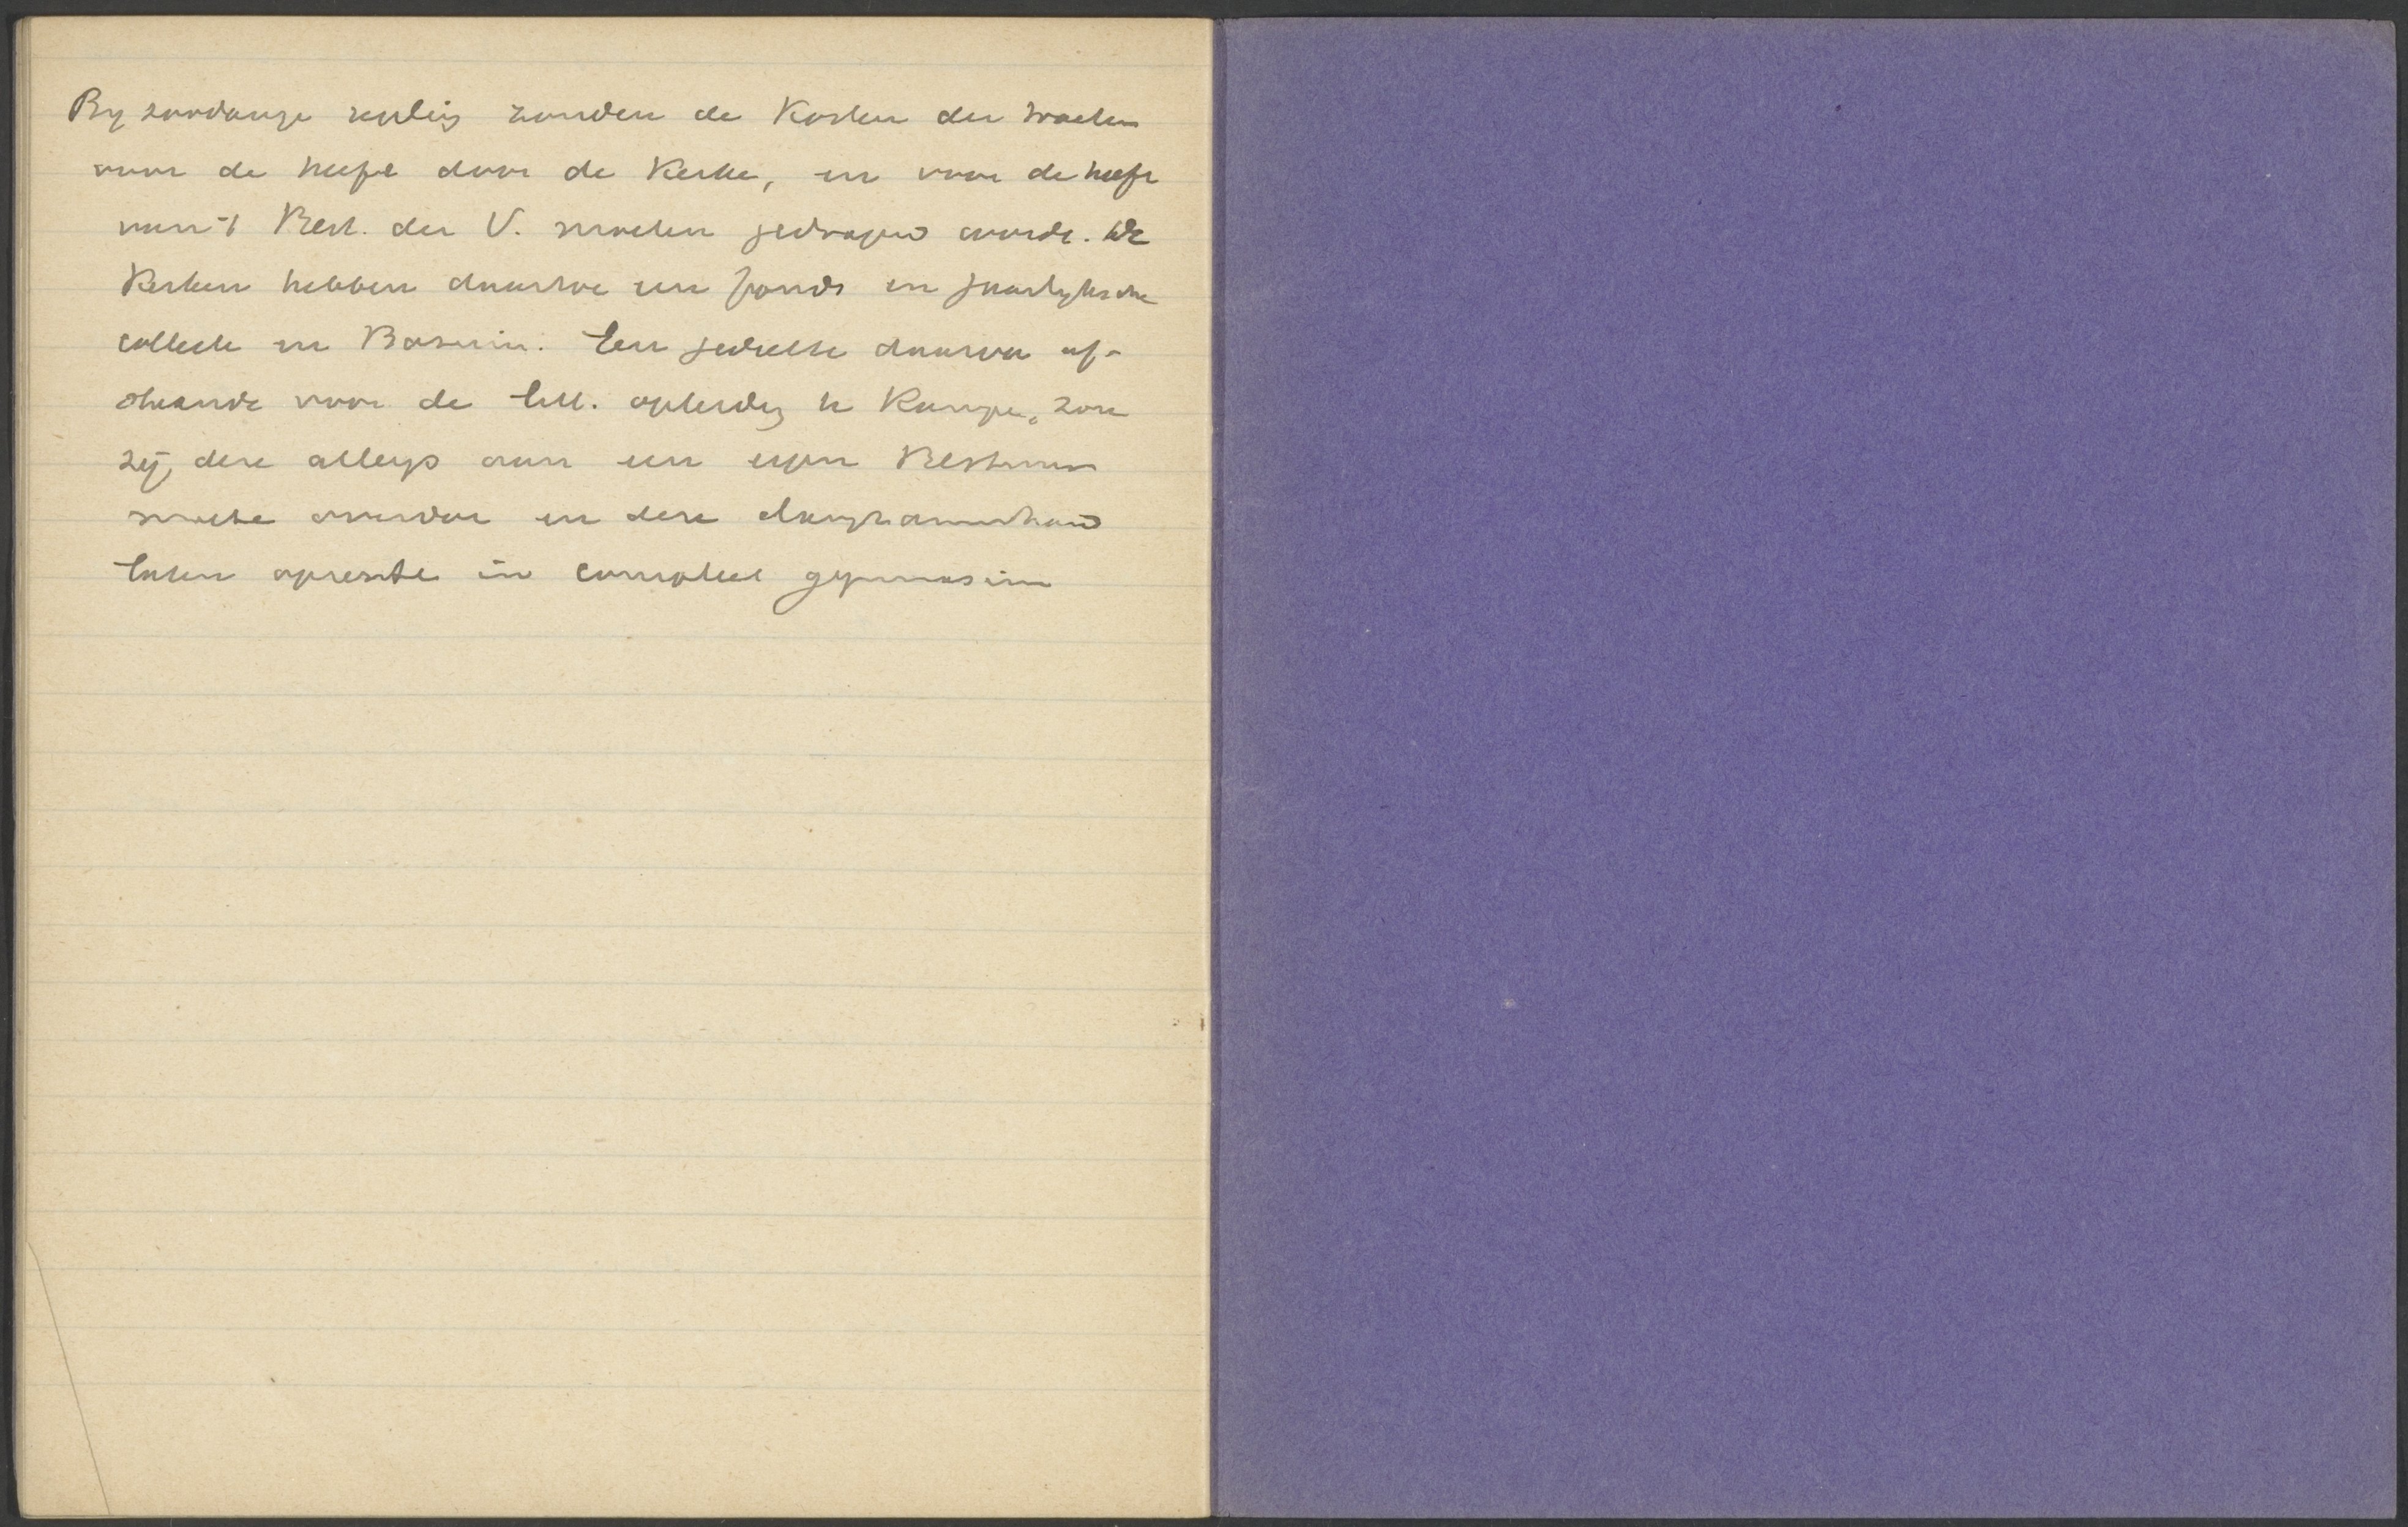 By zoodanige regeling zouden de Kosten der
voor de helft door de Kerken, en voor de helft
van 't Best. der V. moeten gedragen worde. De
Kerken hebben daartoe een fonds en jaarlyksche
collecte en Bazuin. Een gedeelte daarvan af-
voor de litt. opleiding te Kampen, zou
zij, deze alleen aan een eigen Bestuur
moete overdoe en deze
laten in compleet gymnasium